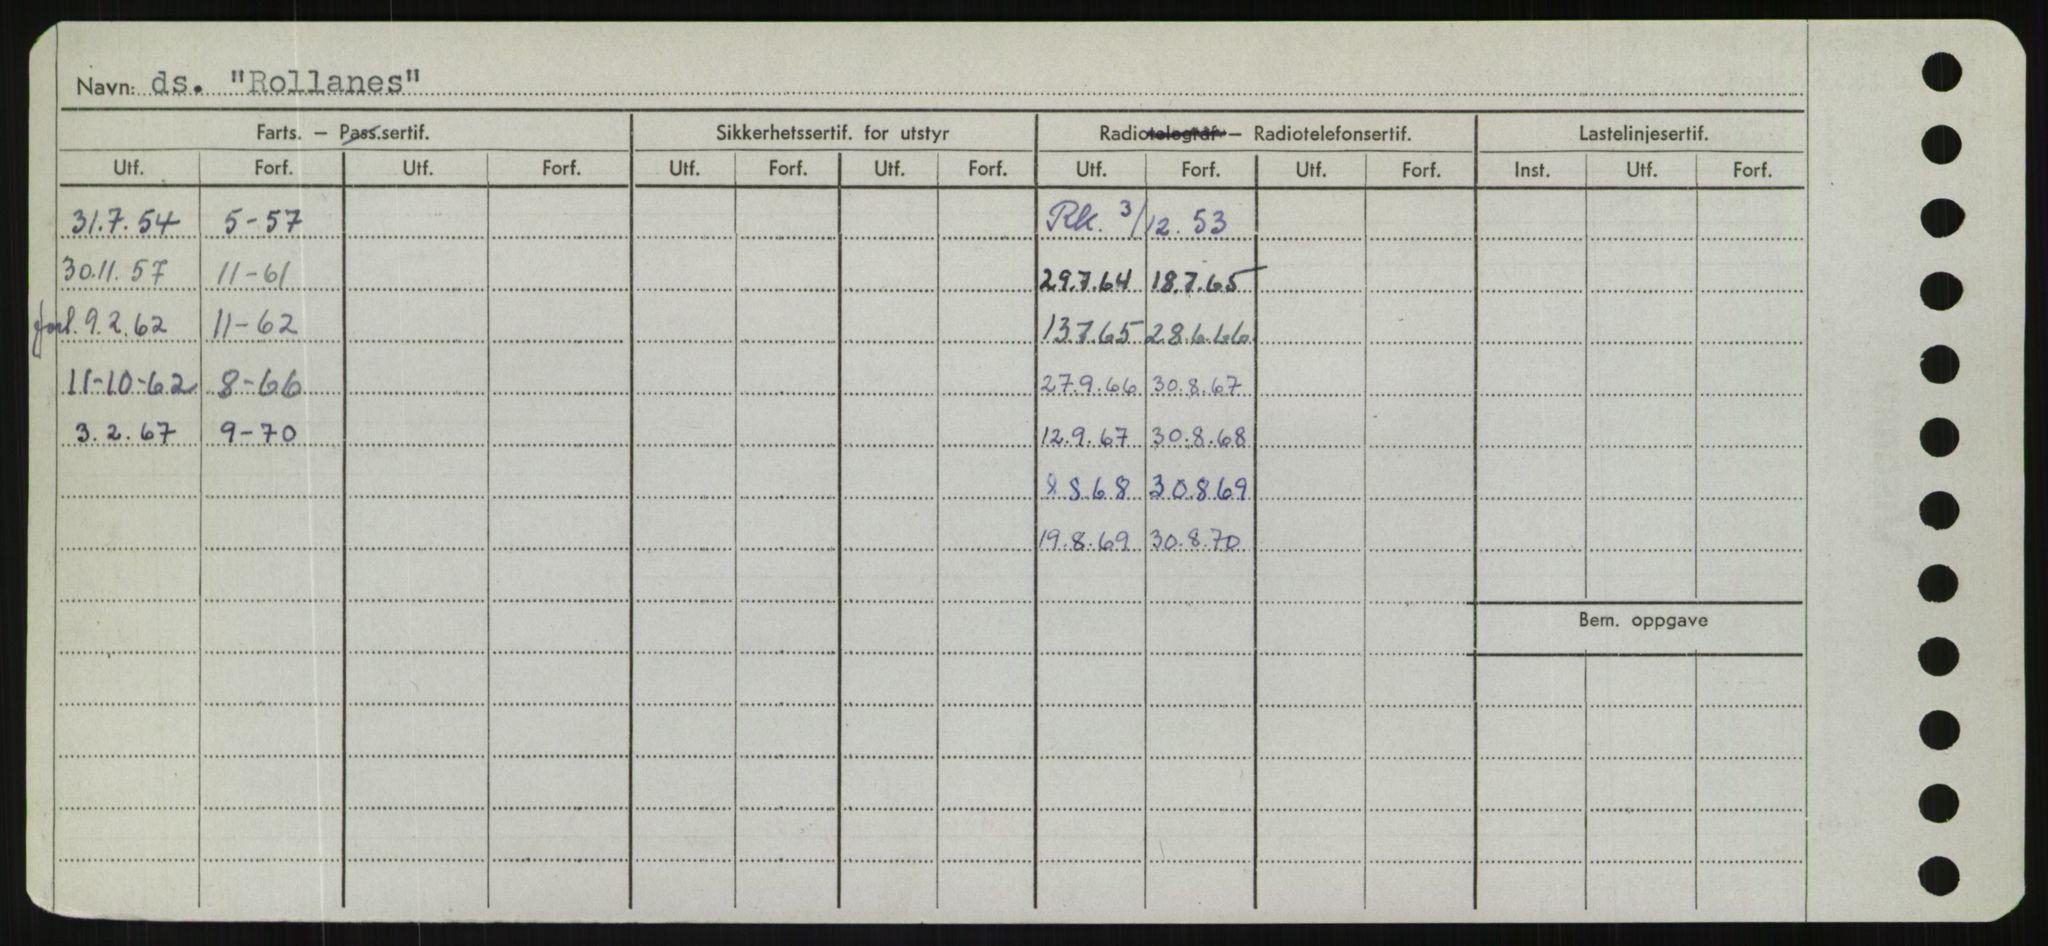 Navn: ds. "Rollanes"
Farts. – Pass.sertif. Sikkerhetssertif. for utstyr Radiotelegraf – Radiotelefonsertif. Lastelinjesertif.
Utf. Forf. Utf. Forf. Utf. Forf. Utf. Forf. Utf. Forf. Utf. Forf. Inst. Utf. Forf.
31.7.54 5-57 Rk. 3/12.53
30.11.57 11-61 29.7.64 18.7.65
forl. 9.2.62 11-62 13.7.65 28.6.66
11-10-62 8-66 27.9.66 30.8.67
3.2.67 9-70 12.9.67 30.8.68
8.8.68 30.8.69
19.8.69 30.8.70
Bem. oppgave